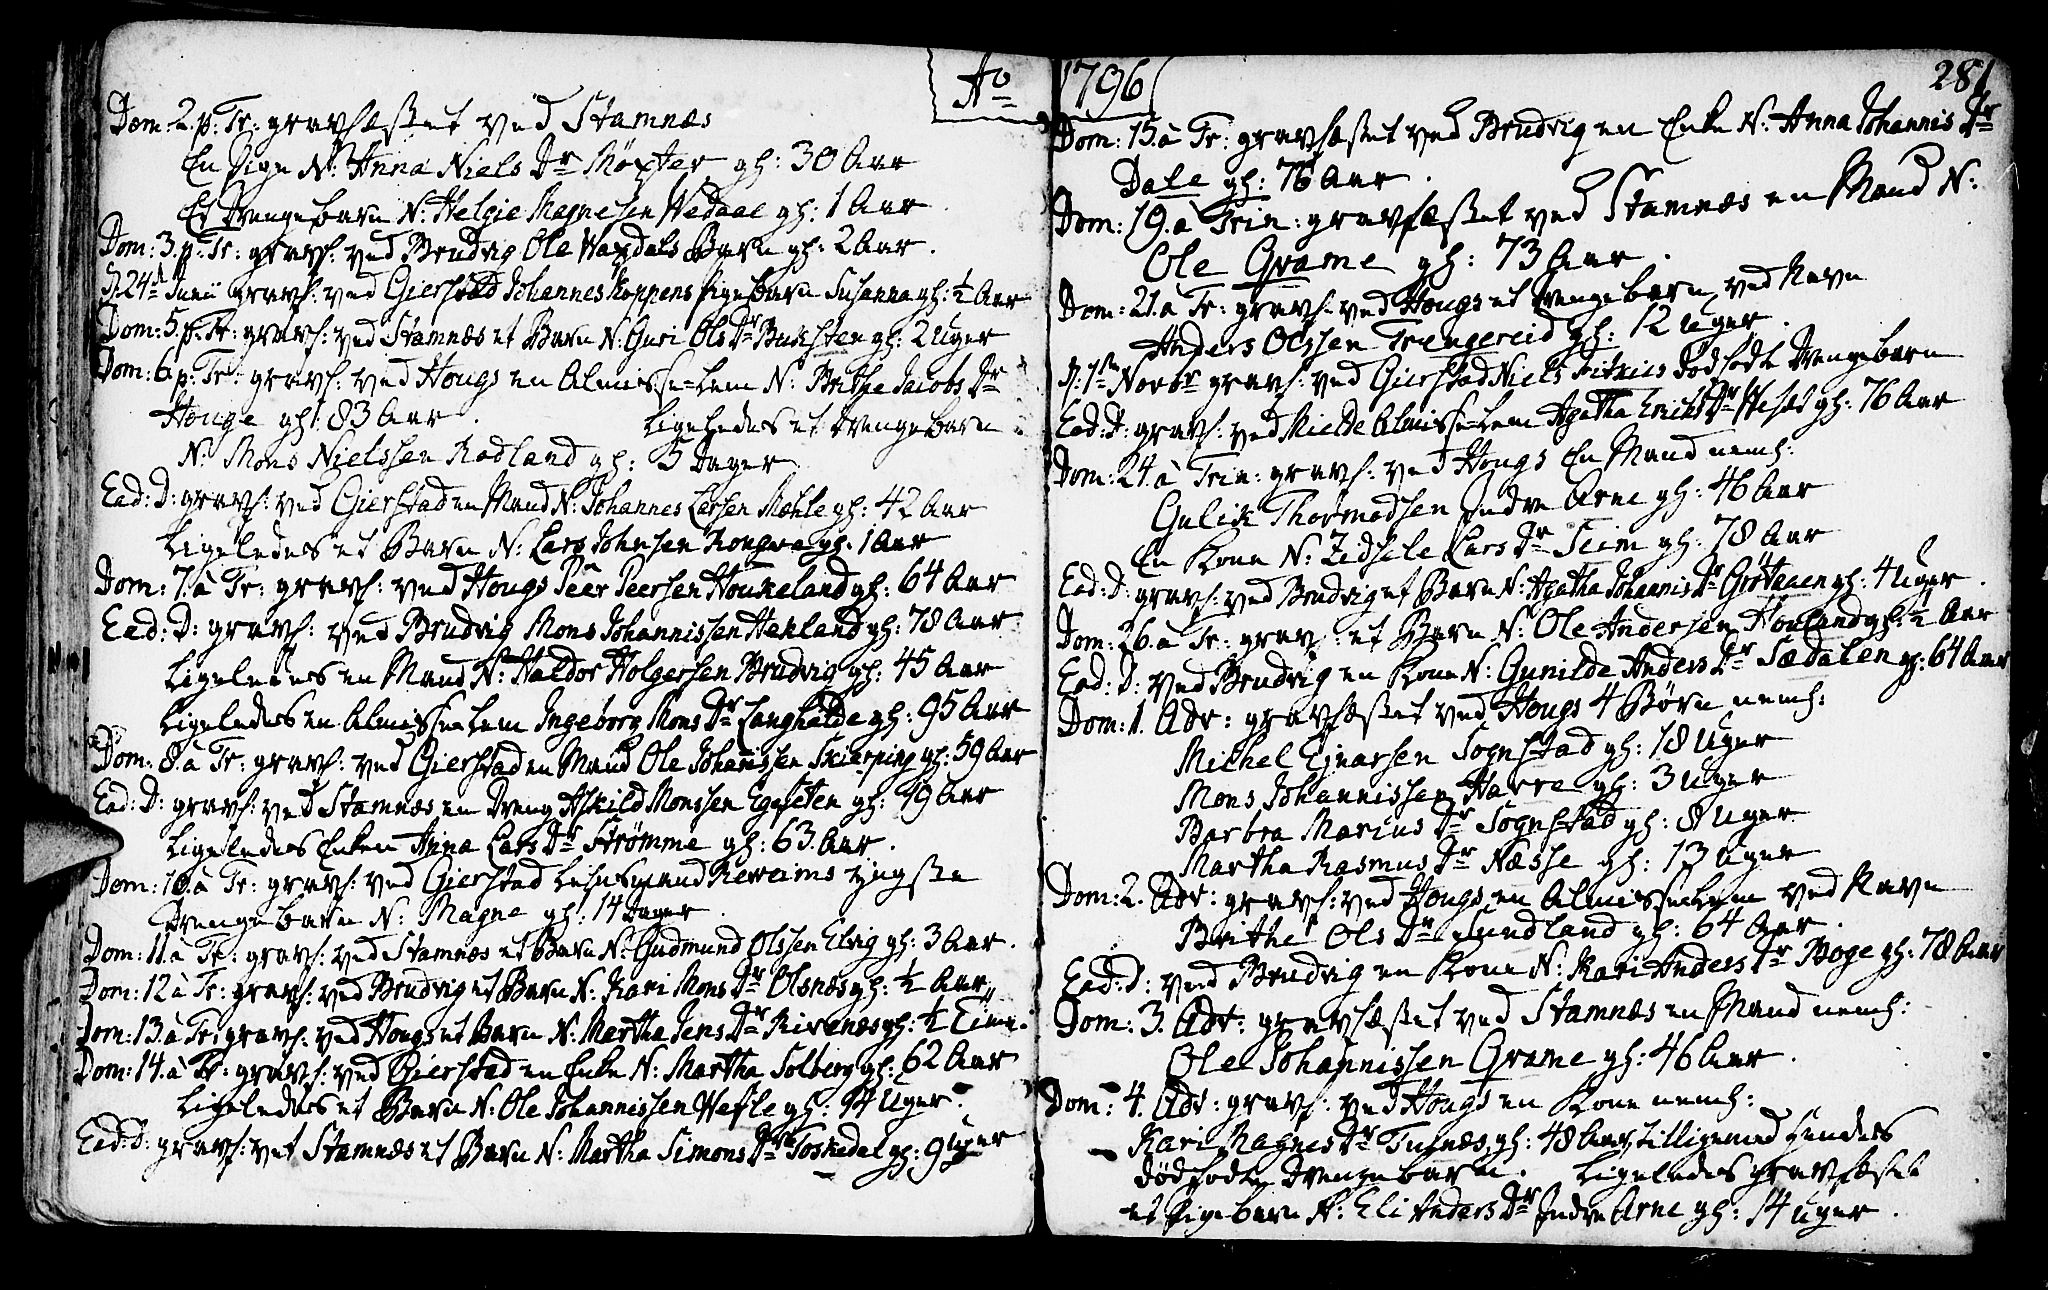 Ao 1796
281
Dom: 2. p. Tr: gravfæstet ved Stamnæs
En Pige N: Anna Niels Dr Møxter gl: 30 Aar
Et Drengebarn N: Helgie Magnesen Wedaae gl: 1 Aar.
Dom: 3. p. Tr: gravf: ved Brudvig Ole Waxdals Barn gl: 2 Aar.
D. 24d Junii gravf: ved Gierstad Johannes Koppens Pigebarn Susanna gl: ½ Aar
Dom: 5. p. Tr: gravf: ved Stamnæs et Barn N: Guri Ols Dr Buksten gl: 2 Uger
Dom: 6 p: Tr: gravf: ved Hougs en Almisse-Lem N: Brithe Jacobs Dr
Houge gl: 83 Aar. Ligeledes et Drengebarn
N: Mons Nielssen Radland gl: 5 Dager
Ead: D: gravf: ved Gierstad en Mand N: Johannes Larsen Mæhle gl: 42 Aar
Ligeledes et Barn N: Lars Johnsen Rongve gl: 1 Aar
Dom: 7. à Tr: gravf: ved Hougs Peer Peersen Houkeland gl: 64 Aar
Ead: D: gravf: ved Brudvig Mons Johannissen Hekland gl: 78 Aar
Ligeledes en Mand N: Haldor Holgersen Brudvig gl: 45 Aar
Ligeledes en Almisse-Lem Ingeborg Mons Dr Langhælde gl: 95 Aar
Dom: 8. à Tr: gravf: ved Gierstad en Mand Ole Johanssen Skierping gl: 59 Aar
Ead: D: gravf: ved Stamnæs en Dreng Askild Monssen Egesten gl: 19 Aar
Ligeledes Enken Anna Lars Dr Strømme gl: 63 Aar.
Dom: 10. à Tr: gravf: ved Gierstad Lehnsmand Reweims yngste
Drengebarn N: Magne gl: 14 Dager.
Dom: 11. à Tr: gravf: ved Stamnæs et Barn N: Gudmund Olssen Elvig gl: 3 Aar.
Dom: 12 à Tr: gravf: ved Brudvig et Barn N: Kari Mons Dr Olsnæs gl: ½ Aar
Dom: 13. à Tr: gravf: ved Hougs et Barn N: Martha Jens Dr Rivenæs gl: ½ Time.
Dom: 14. à Tr: gravf: ved Gierstad en Enke N: Martha Solberg gl: 62 Aar
Ligeledes et Barn N: Ole Johannissen Wefle gl: 14 Uger.
Ead: D: gravf: vet Stamnæs et Barn N: Martha Simons Dr Toskedal gl: 9 Uger
Dom: 15. à Tr: gravfæstet ved Brudvig en Enke N: Anna Johannis Dr
Dale gl: 76 Aar.
Dom: 19. à Trin: gravfæstet ved Stamnæs en Mand N:
Ole Grame gl: 73 Aar.
Dom: 21. à Tr: gravf: ved Hougs et Drengebarn ved Navn
Anders Olssen Trengereid gl: 12 Uger.
D. 1te Novbr gravf: ved Gierstad Niels dødfødte Drengebarn
Ead: D: gravf: ved Mielde Almisse-Lem Agatha Eriks Dr gl: 76 Aar
Dom: 24. à Trin: gravf: ved Hougs En Mand neml:
Gulik Thormodsen Indre Arne gl: 46 Aar
En Kone N: Zidsele Lars Dr Seim gl: 78 Aar
Ead: D: gravf: ved Brudvig et Barn N: Agatha Johannis Dr Grøtaaen gl: 4 Uger.
Dom: 26. à Tr: gravf: et Barn N: Ole Andersen Houland gl: ½ Aar
Ead: D: ved Brudvig en Kone N: Gunilde Anders Dr Sædalen gl: 64 Aar
Dom: 1. Adv: gravfæstet ved Hougs 4 Børn neml:
Michel Ejnarsen Sognstad gl: 18 Uger
Mons Johannissen Harre gl: 3 Uger
Barbra Marius Dr Sognstad gl: 8 Uger
Martha Rasmus Dr Næsse gl: 13 Uger
Dom: 2. Adv: gravf: ved Hougs en Almisse Lem ved Navn
Brithe Ols Dr Sundland gl: 64 Aar.
Ead: D: ved Brudvig en Kone N: Kari Anders Dr Boge gl: 78 Aar
Dom: 3. Adv: gravfæstet ved Stamnæs en Mand neml:
Ole Johannissen Grame gl: 46 Aar.
Dom: 4. Adv: gravf: ved Hougs en Kone neml:
Kari Magnes Dr Tunæs gl: 48 Aar, tilligemed hendes
dødfødte Drengebarn. Ligeledes gravfæstet
et Pigebarn N: Eli Anders Dr Indre Arne gl: 14 Uger.